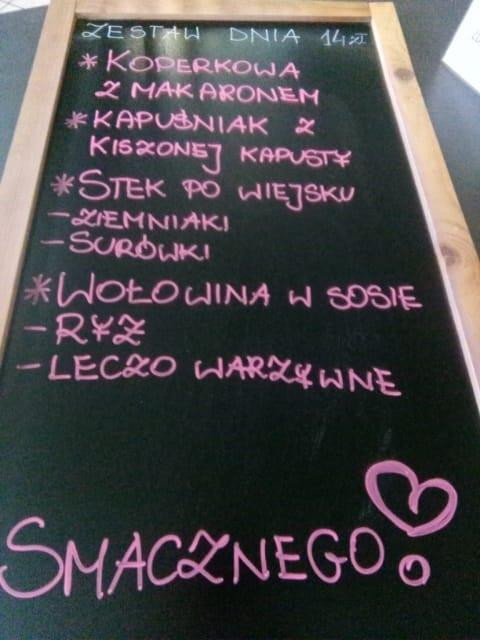 ZESTAW DNIA 14 zł
* KOPERKOWA
Z MAKARONEM
* KAPUŚNIAK Z
KISZONEJ KAPUSTY
* STEK PO WIEJSKU
- ZIEMNIAKI
- SURÓWKI
* WOŁOWINA W SOSIE
- RYZ
- LECZO WARZYWNE
SMACZNEGO!